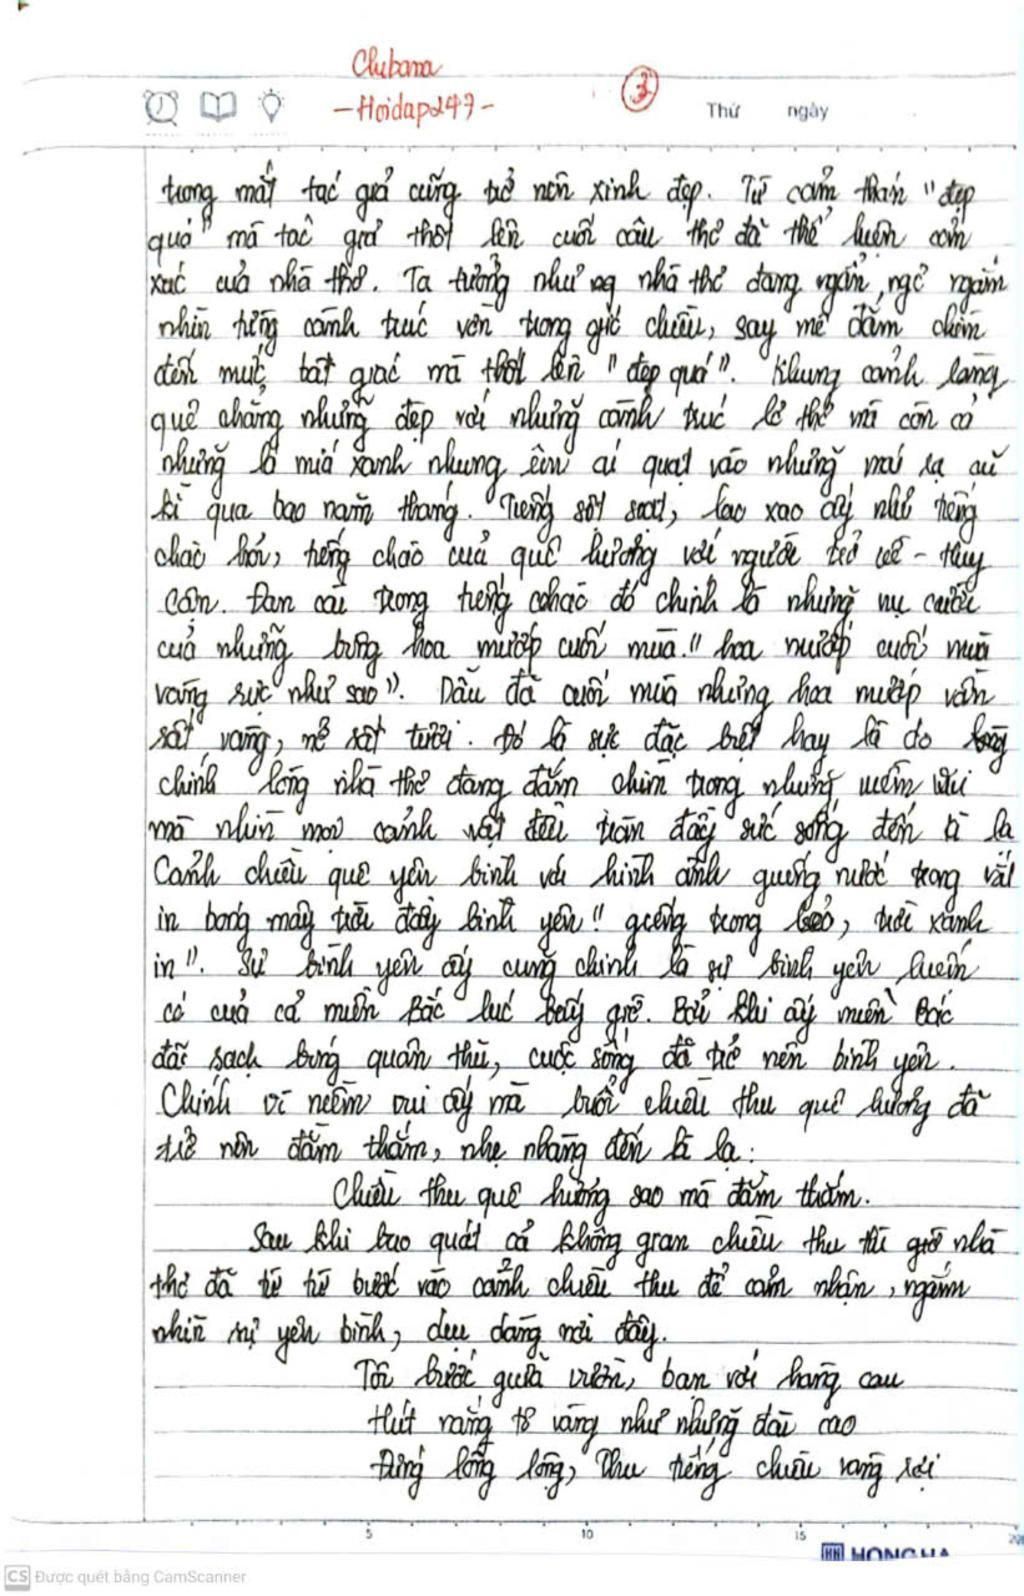 Clubana
-Hoidap247-
3
Thứ ngày
trong mắt tác giả cũng trở nên xinh đẹp. Từ cảm thán "đẹp
quá" mà tác giả thốt lên cuối câu thơ đã thể hiện cảm
xúc của nhà thơ. Ta tưởng như ng nhà thơ đang ngẩn ngơ ngắm
nhìn từng cành trúc vờn trong gió chiều, say mê đắm chìm
đến mức bất giác mà thốt lên "đẹp quá". Khung cảnh làng
quê chẳng những đẹp với những cành trúc lơ thơ mà còn có
những lá mía xanh nhung êm ái quạt vào những mái rạ cũ
kĩ qua bao năm tháng. Tiếng sột soạt, lao xao ấy như tiếng
chào hỏi, tiếng chào của quê hương với người trở về - Huy
Cận. Đan cài trong tiếng chào đó chính là những nụ cười
của những bông hoa mướp cuối mùa. "hoa mướp cuối mùa
vàng rực như sao". Dẫu đã cuối mùa nhưng hoa mướp vẫn
rất vàng, nở rất tươi. Đó là sự đặc biệt hay là do
chính lòng nhà thơ đang đắm chìm trong những niềm vui
mà nhìn mọi cảnh vật đều tràn đầy sức sống đến kì lạ
Cảnh chiều quê yên bình với hình ảnh giếng nước trong vắt
in bóng mây trời đầy bình yên "giếng trong leo, trời xanh
in". Sự bình yên ấy cũng chính là sự bình yên
có của cả miền Bắc lúc bấy giờ. Bởi khi ấy miền Bắc
đã sạch bóng quân thù, cuộc sống đã trở nên bình yên.
Chính vì niềm vui ấy mà buổi chiều thu quê hương đã
trở nên đằm thắm, nhẹ nhàng đến kì lạ:
Chiều thu quê hương sao mà đằm thắm.
Sau khi bao quát cả không gian chiều thu thì giờ nhà
thơ đã từ từ bước vào cảnh chiều thu để cảm nhận, ngắm
nhìn sự yên bình, dịu dàng nơi đây.
Tôi bước giữa vườn, bạn với hàng cau
Hút nắng tơ vàng như những đài cao
Đứng lồng lộng, thu tiếng chiều vàng rọi
5 10 15 20
HONG HA
CS Được quét bằng CamScanner